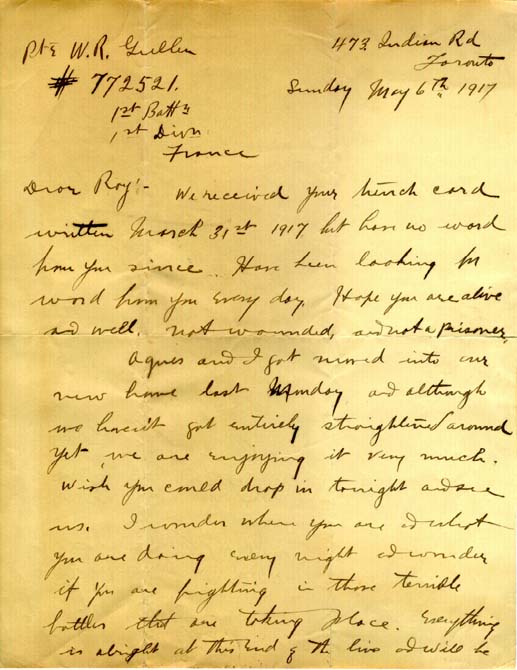 Pte W. R. Gullen
# 772521.
1st Batt'n
1st Divn
France
473 Indian Rd
Toronto
Sunday May 6th, 1917
Dear Roy:- We received your trench card
written March 31st 1917 but have no word
from you since. Have been looking for
word from you every day. Hope you are alive
and well, not wounded, and not a prisoner.
Agnes and I got moved into our
new home last Monday and although
we haven't got entirely straightened around
yet, we are enjoying it very much.
Wish you could drop in tonight and see
us. I wonder where you are and what
you are doing every night and wonder
if you are fighting in those terrible
battles that are taking place. Everything
is alright at this End of the line and will be